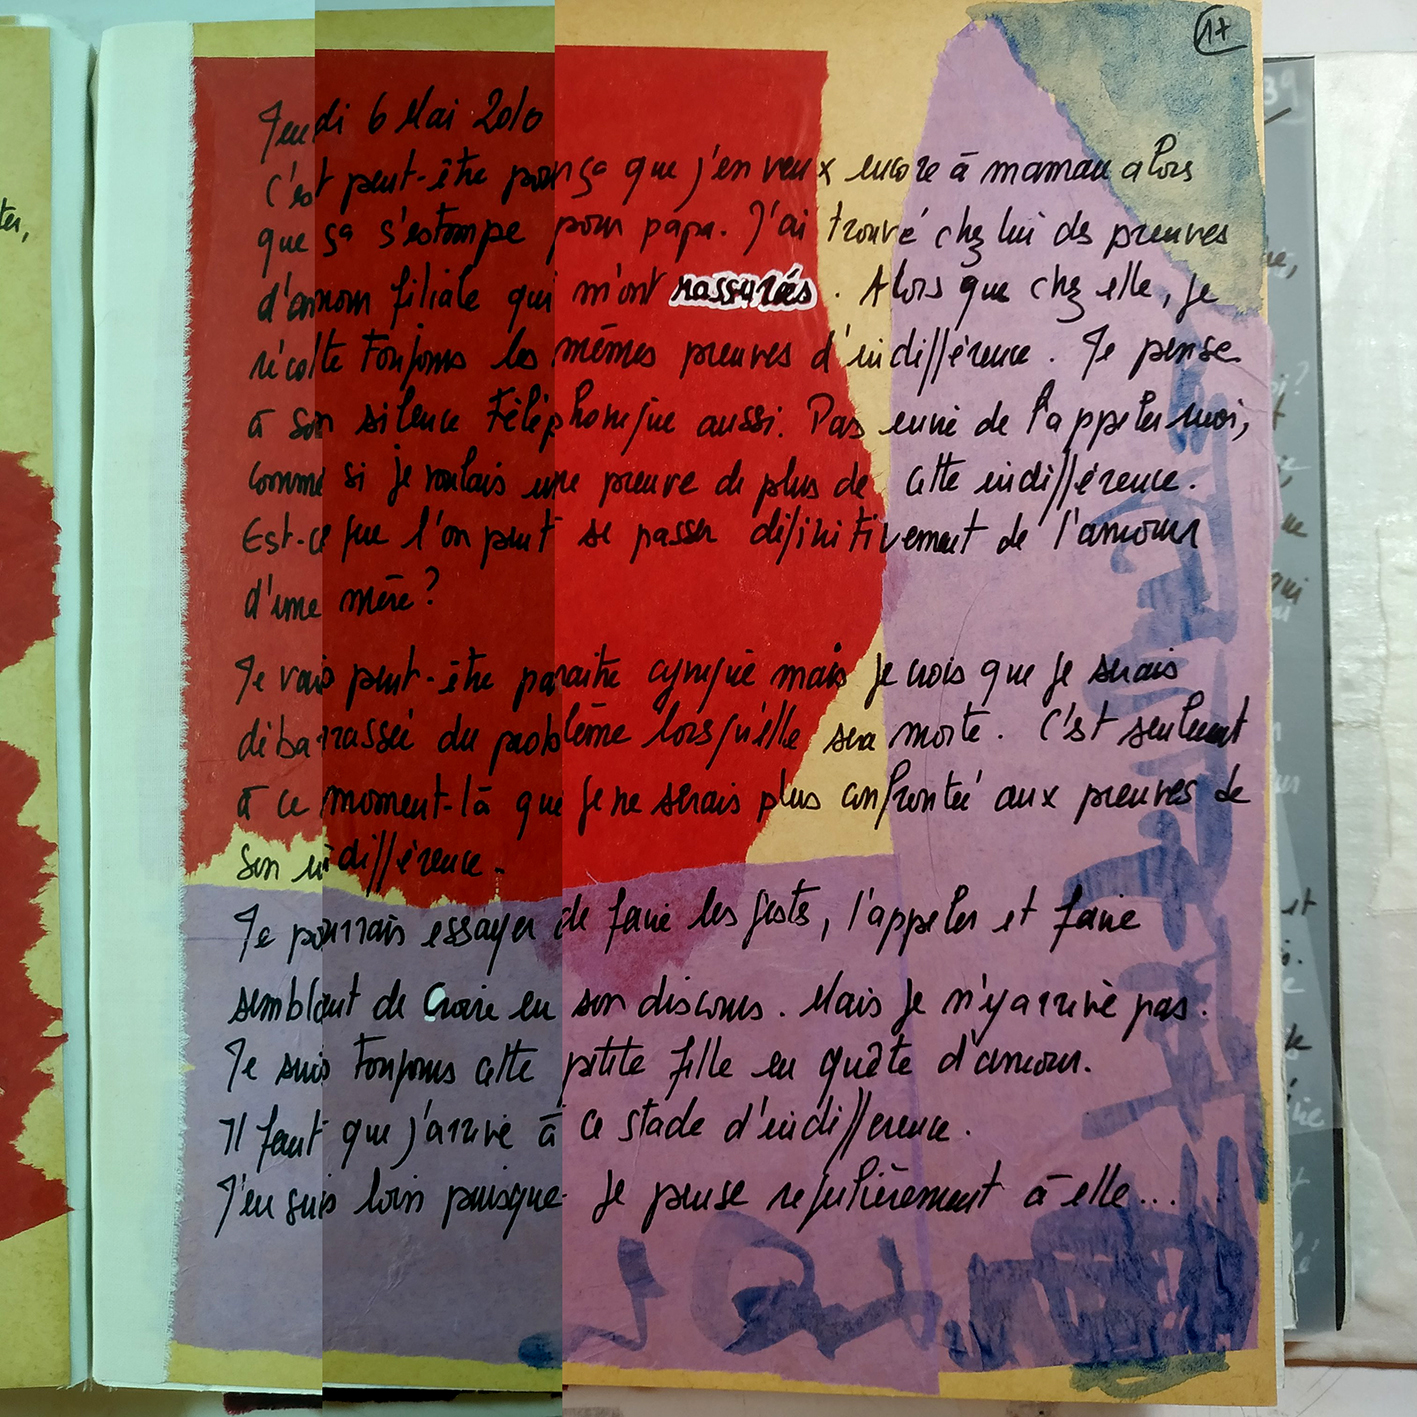 17
Jeudi 6 Mai 2010
C'est peut-être pour ça que j'en veux encore à maman alors
que ça s'estompe pour papa. J'ai trouvé chez lui des preuves
d'amour filiale qui m'ont rassurées. Alors que chez elle, je
récolte toujours les mêmes preuves d'indifférence. Je pense
à son silence téléphonique aussi. Pas envie de l'appeler moi,
comme si je voulais une preuve de plus de cette indifférence.
Est-ce que l'on peut se passer définitivement de l'amour
d'une mère ?
Je vais peut-être paraitre cynique mais je crois que je serais
débarrassée du problème lorsqu'elle sera morte. C'est seulement
à ce moment-là que je ne serais plus confrontée aux preuves de
son indifférence.
Je pourrais essayer de faire les gestes, l'appeler et faire
semblant de croire en son discours. Mais je n'y arrive pas.
Je suis toujours cette petite fille en quête d'amour.
Il faut que j'arrive à ce stade d'indifférence.
J'en suis loin puisque je pense régulièrement à elle...
39